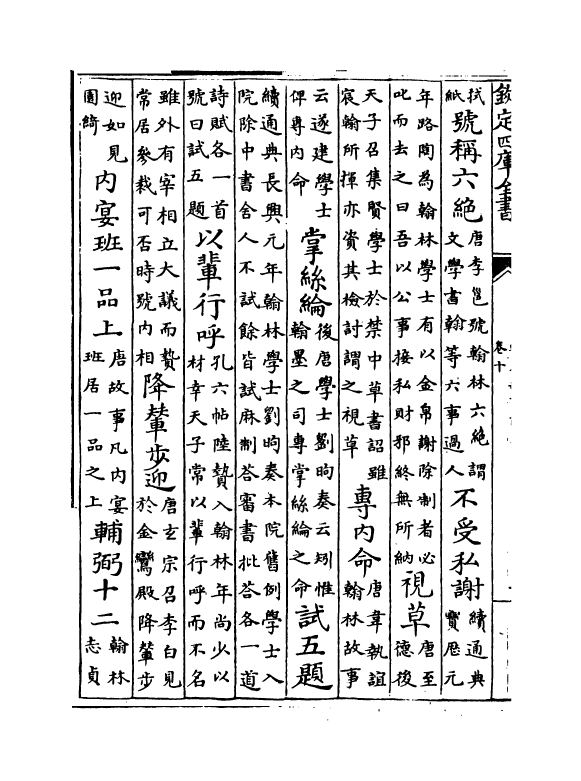 欽定四庫全書
卷十
拭
紙
號稱六絶
唐李邕號翰林六絶謂
文學書翰等六事過人
不受私謝
續通典
寳厯元
年路陶為翰林學士有以金帛謝除制者必
叱而去之曰吾以公事接私財邪終無所納
視草
唐至
德後
天子召集賢學士於禁中草書詔雖
宸翰所揮亦資其檢討謂之視草
專内命
唐韋執誼
翰林故事
云遂建學士
俾專内命
掌絲綸
後唐學士劉昫奏云矧惟
翰墨之司專掌絲綸之命
試五題
續通典長興元年翰林學士劉昫奏本院舊例學士入
院除中書舍人不試餘皆試麻制荅審書批荅各一道
詩賦各一首
號曰試五題
以輩行呼
孔六帖陸贄入翰林年尚少以
材幸天子常以輩行呼而不名
雖外有宰相立大議而贄
常居參裁可否時號内相
降輦步迎
唐玄宗召李白見
於金鸞殿降輦步
迎如見
園綺
内宴班一品上
唐故事凡内宴
班居一品之上
輔弼十二
翰林
志貞